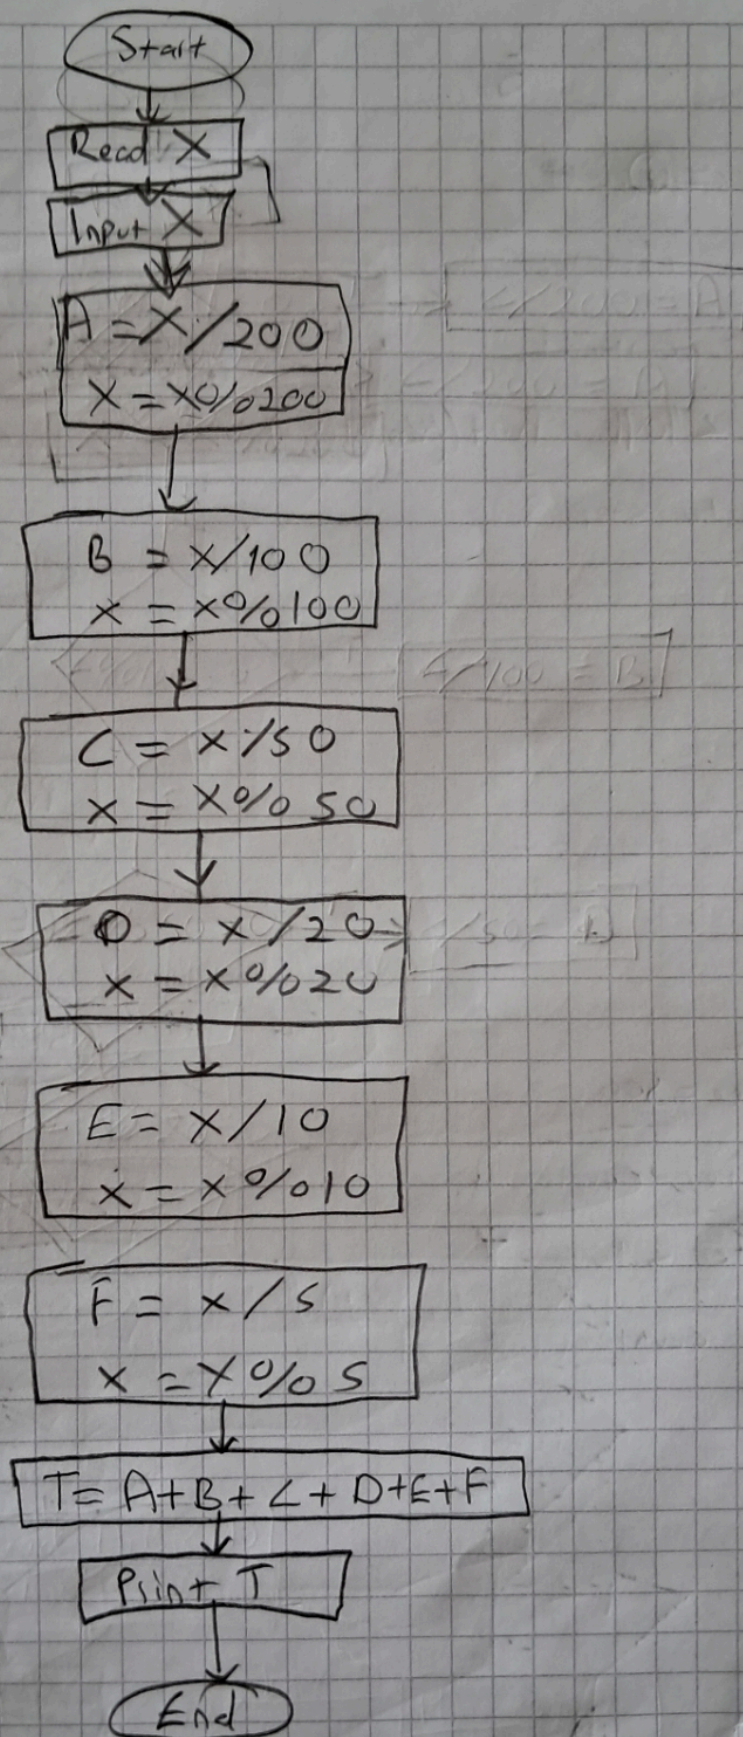 Start
Read X
Input X
A = X/200
X = X%200
B = X/100
X = X%100
C = X/50
X = X%50
D = X/20
X = X%20
E = X/10
X = X%10
F = X/5
X = X%5
T = A+B+C+D+E+F
Print T
End